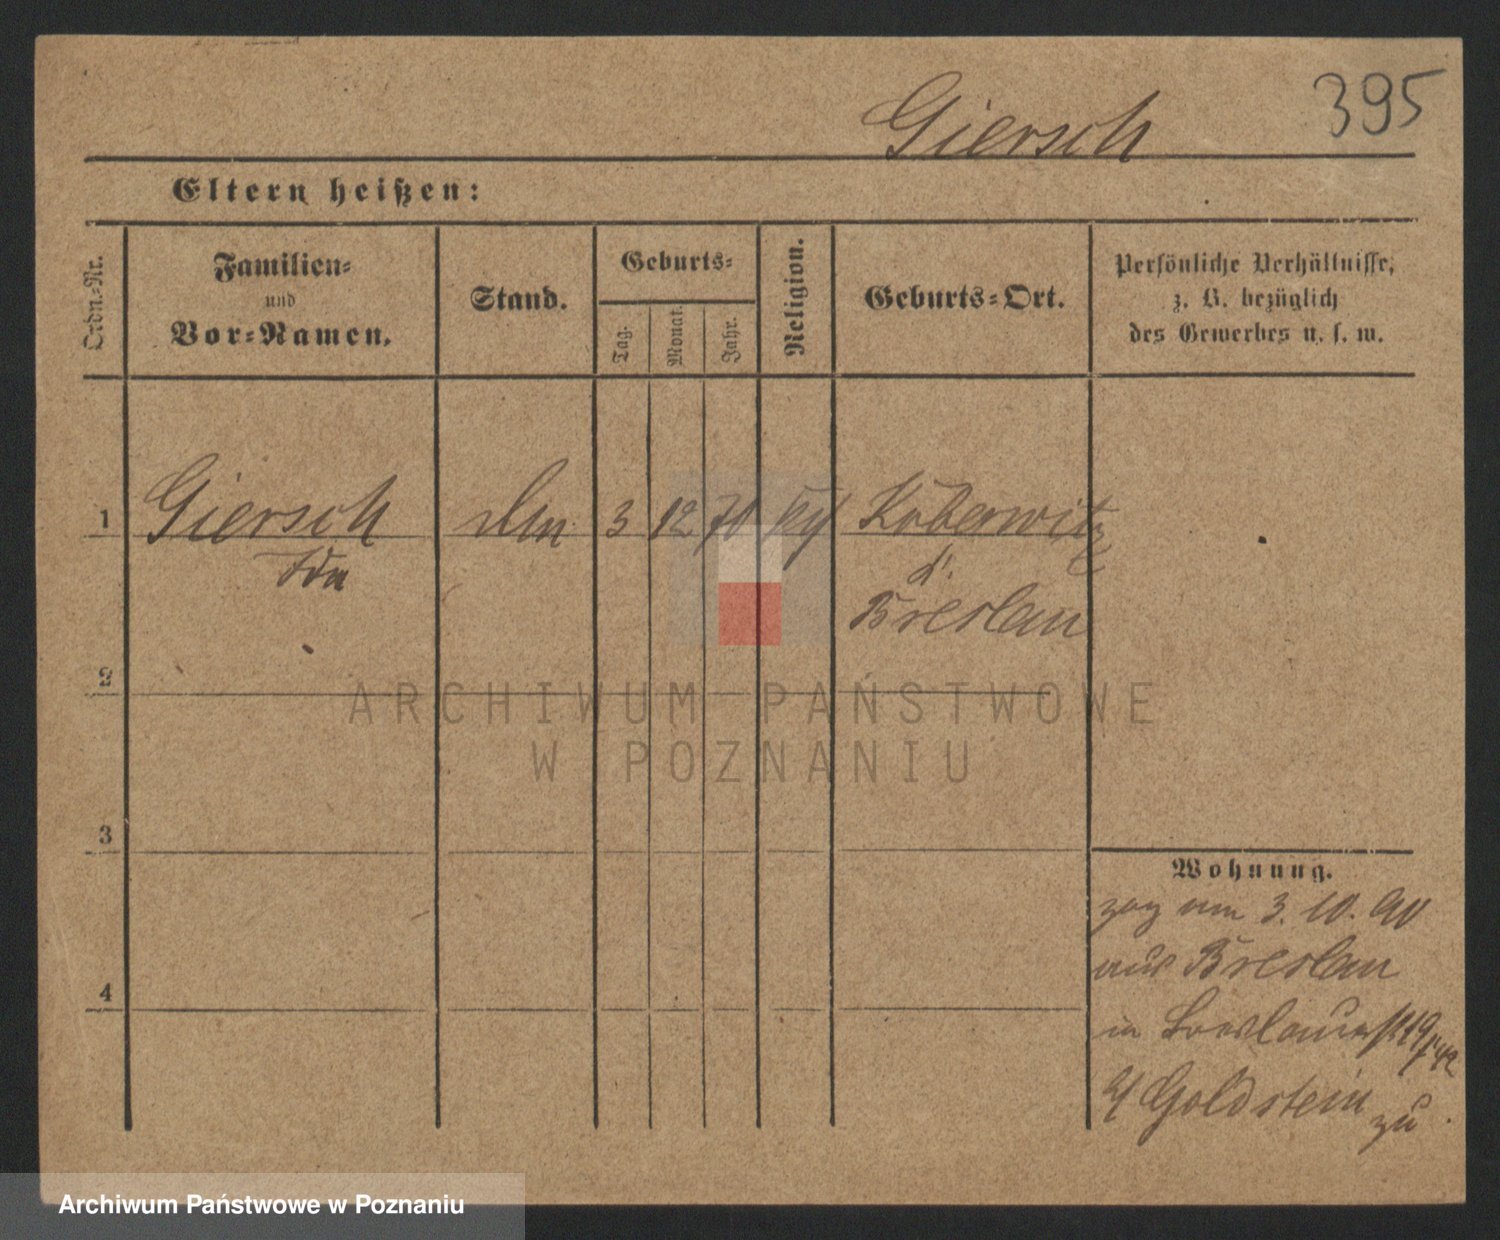 395
Giersch
Eltern heißen:
Ordn.-Nr.
Familien-
und
Vor-Namen.
Stand.
Geburts-
Tag.
Monat.
Jahr.
Religion.
Geburts-Ort.
Persönliche Verhältnisse,
z. B. bezüglich
des Gewerbes u. s. w.
1 Giersch 3 12 70 Koberwitz
Ida
Breslau
2
ARCHIWUM PAŃSTWOWE
W POZNANIU
3
Wohnung.
zog am 3. 10. 90
aus Breslau
in Breslauerstr 19
Goldstein
zu
4
Archiwum Państwowe w Poznaniu